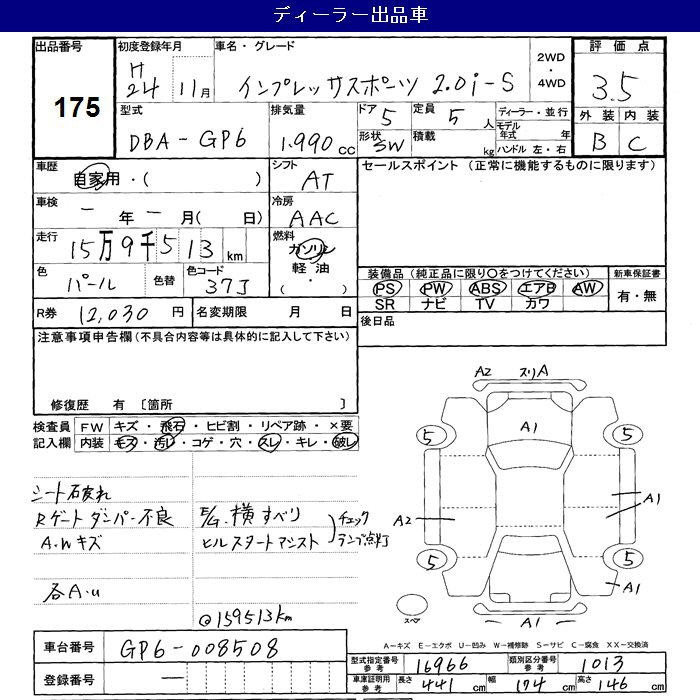 ディーラー出品車
出品番号
175
初度登録年月
H
24 11月
車名・グレード
インプレッサスポーツ 2.0i-S
2WD
・
4WD
評価点
3.5
外装 内装
B C
型式
DBA-GP6
排気量
1.990 cc
ドア 5
形状 5W
定員 5 人
積載 kg
ディーラー・並行
モデル年式 年
ハンドル 左・右
車歴
自家用・( )
シフト
AT
セールスポイント (正常に機能するものに限ります)
車検
ー 年 ー 月( 日)
冷房
AAC
走行
15万9千513 km
燃料
ガソリン
軽油
( ・ )
色
パール
色替
色コード
37J
装備品(純正品に限り○をつけてください)
PS PW ABS エアB AW
SR ナビ TV カワ
新車保証書
有・無
R券 12,030 円
名変期限 月 日
後日品
注意事項申告欄(不具合内容等は具体的に記入して下さい)
修復歴 有 〔箇所 〕
検査員
記入欄
FW キズ・飛石・ヒビ割・リペア跡・×要
内装 キズ・汚レ・コゲ・穴・スレ・キレ・破レ
シート破れ
Rゲートダンパー不良
A.Wキズ
各A.u
E/G.横すべり
ヒルスタートアシスト
チェック
ランプ点灯
@159513km
A2 スリA
A1
5 5
A2
A1
5 5
A1
スペア
A1
A-キズ E-エクボ U-凹み W-補修跡 S-サビ C-腐食 XX-交換済
車台番号 GP6-008508
登録番号 ー
型式指定番号
参考
16966
類別区分番号
参考
1013
車庫証明用
参考
長さ 441 cm 幅 174 cm 高さ 146 cm